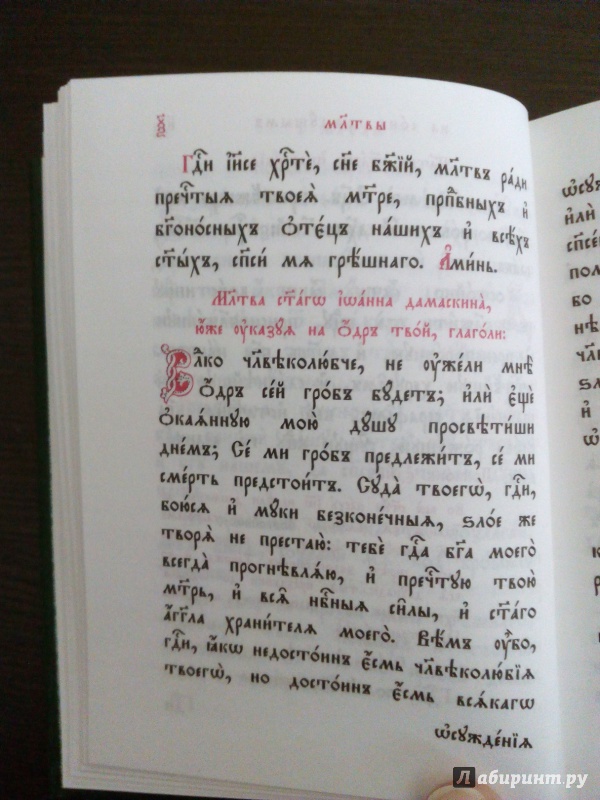 мл҃твы
Гдⷭ҇и і҆и҃се хрⷭ҇тѐ, сн҃е бж҃їй, мл҃твъ ра́ди
пречⷭ҇тыѧ твоеѧ̀ мт҃ре, прпⷣбныхъ и҆
бг҃оно́сныхъ ѻ҆те́цъ на́шихъ и҆ всѣ́хъ
ст҃ы́хъ, сп҃сѝ мѧ грѣ́шнаго. А҆ми́нь.
Мл҃тва ст҃а́гѡ і҆ѡа́нна дамаскина̀,
ю҆́же ᲂу҆казꙋѧ на ѻ҆́дръ тво́й, глаго́ли:
Влⷣко чл҃вѣколю́бче, не ᲂу҆же́ли мнѣ̀
ѻ҆́дръ се́й гро́бъ бꙋ́детъ; и҆лѝ є҆щѐ
ѻ҆каѧ́ннꙋю мою̀ дꙋ́шꙋ просвѣти́ши
дне́мъ; Се́ ми гро́бъ предлежи́тъ, се́ ми
сме́рть предстои́тъ. Сꙋда̀ твоегѡ̀, гдⷭ҇и,
бою́сѧ и҆ мꙋ́ки безконе́чныѧ, ѕло́е же
творѧ̀ не престаю̀: тебѐ гдⷭ҇а бг҃а моего̀
всегда̀ прогнѣвлѧ́ю, и҆ пречⷭ҇тꙋю твою̀
мт҃рь, и҆ всѧ̑ нбⷭ҇ныѧ си̑лы, и҆ ст҃а́го
а҆́гг҃ла храни́телѧ моего̀. Вѣ́мъ ᲂу҆́бѡ,
гдⷭ҇и, ꙗ҆́кѡ недосто́инъ є҆́смь чл҃вѣколю́бїѧ
твоегѡ̀, но досто́инъ є҆́смь всѧ́кагѡ
ѡ҆сꙋжде́нїѧ
Лабиринт.ру